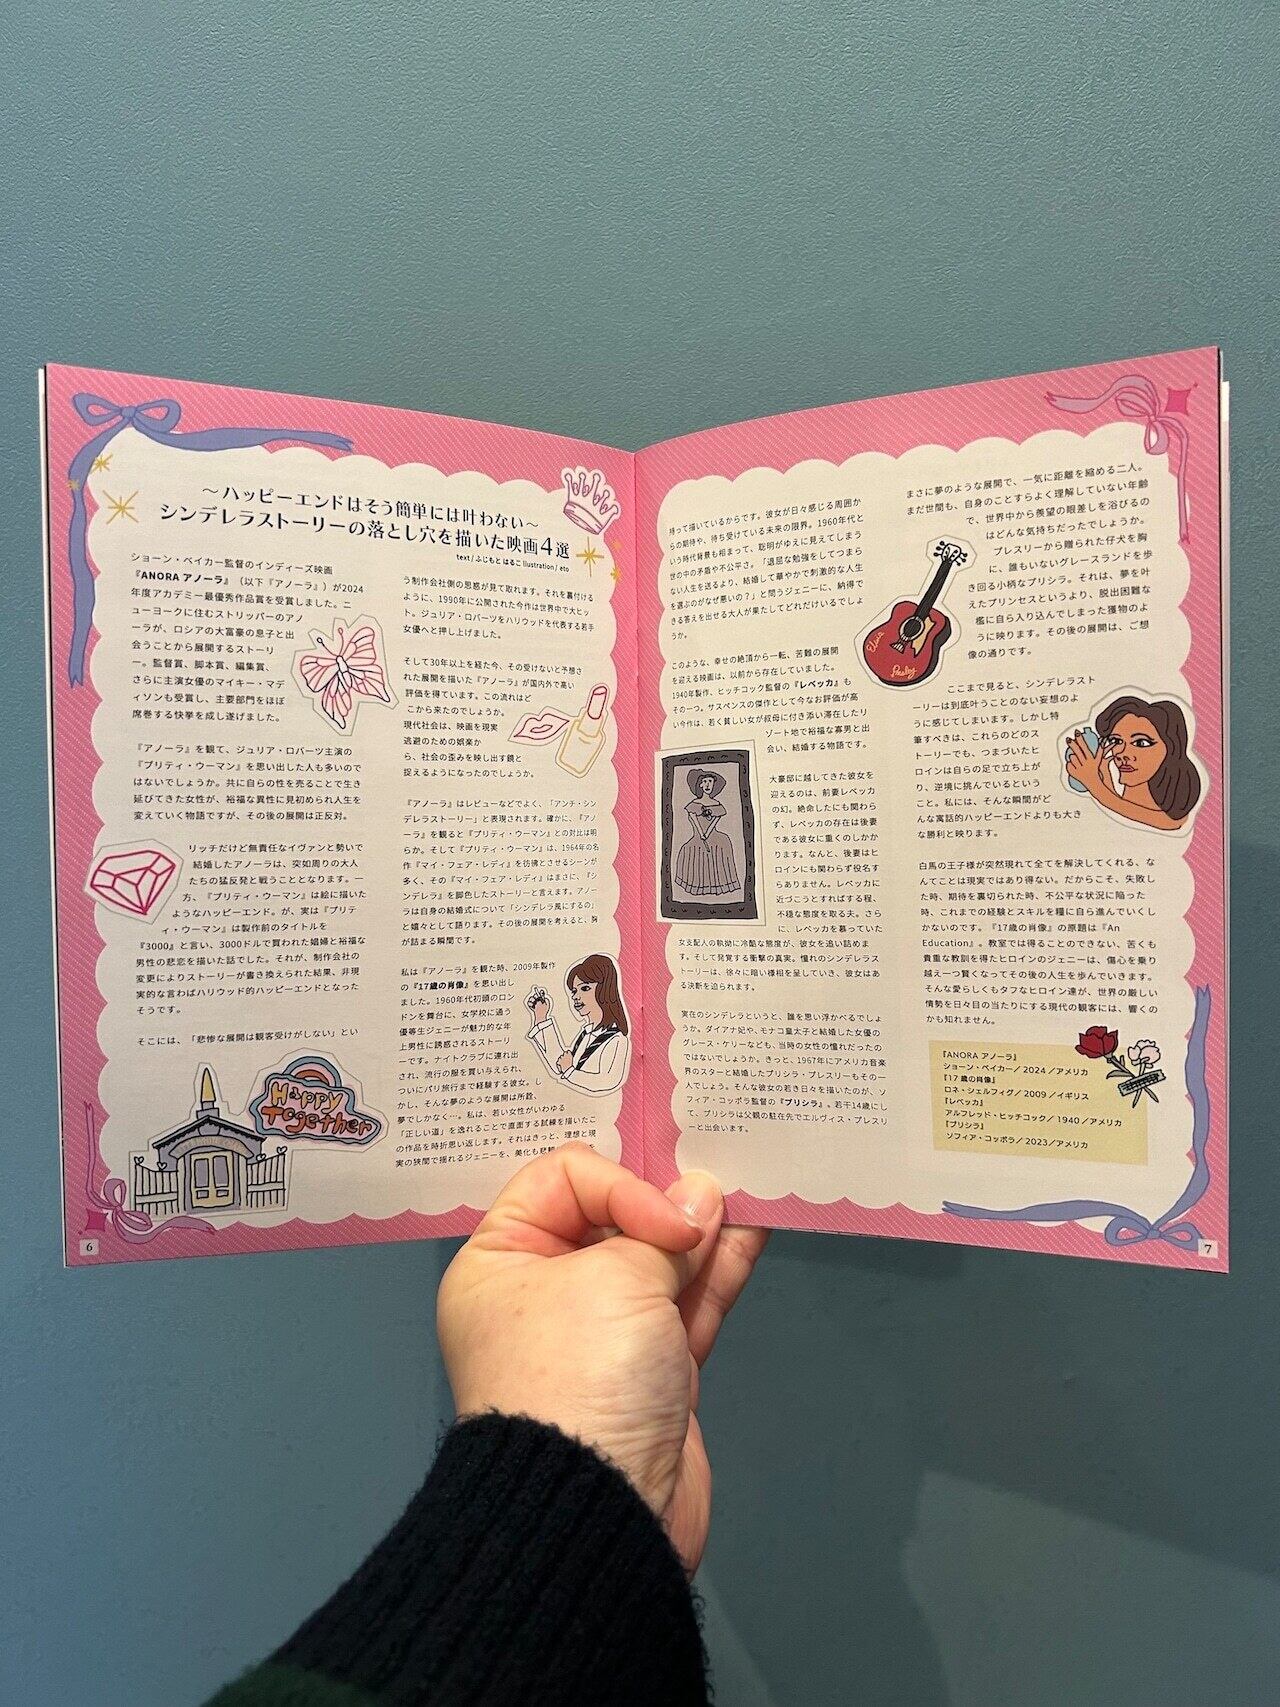 ～ハッピーエンドはそう簡単には叶わない～
シンデレラストーリーの落とし穴を描いた映画4選
text / ふじもと はるこ Illustration / eto
ショーン・ベイカー監督のインディーズ映画
『ANORA アノーラ』（以下『アノーラ』）が2024
年度アカデミー最優秀作品賞を受賞しました。ニ
ューヨークに住むストリッパーのアノ
ーラが、ロシアの大富豪の息子と出
会うことから展開するストーリ
ー。監督賞、脚本賞、編集賞、
さらに主演女優のマイキー・マデ
ィソンも受賞し、主要部門をほぼ
席巻する快挙を成し遂げました。
『アノーラ』を観て、ジュリア・ロバーツ主演の
『プリティ・ウーマン』を思い出した人も多いので
はないでしょうか。共に自らの性を売ることで生き
延びてきた女性が、裕福な異性に見初められ人生を
変えていく物語ですが、その後の展開は正反対。
リッチだけど無責任なイヴァンと勢いで
結婚したアノーラは、突如周りの大人
たちの猛反発と戦うこととなります。一
方、『プリティ・ウーマン』は絵に描いた
ようなハッピーエンド。が、実は『プリテ
ィ・ウーマン』は製作前のタイトルを
『3000』と言い、3000ドルで買われた娼婦と裕福な
男性の悲恋を描いた話でした。それが、制作会社の
変更によりストーリーが書き換えられた結果、非現
実的な言わばハリウッド的ハッピーエンドとなった
そうです。
そこには、「悲惨な展開は観客受けがしない」とい
Happy
Together
う制作会社側の思惑が見て取れます。それを裏付ける
ように、1990年に公開された今作は世界中で大ヒッ
ト。ジュリア・ロバーツをハリウッドを代表する若手
女優へと押し上げました。
そして30年以上を経た今、その受けないと予想さ
れた展開を描いた『アノーラ』が国内外で高い
評価を得ています。この流れはど
こから来たのでしょうか。
現代社会は、映画を現実
逃避のための娯楽か
ら、社会の歪みを映し出す鏡と
捉えるようになったのでしょうか。
『アノーラ』はレビューなどでよく、「アンチ・シン
デレラストーリー」と表現されます。確かに、『アノ
ーラ』を観ると『プリティ・ウーマン』との対比は明
らか。そして『プリティ・ウーマン』は、1964年の名
作『マイ・フェア・レディ』を彷彿とさせるシーンが
多く、その『マイ・フェア・レディ』はまさに、『シン
デレラ』を脚色したストーリーと言えます。アノー
ラは自身の結婚式について「シンデレラ風にするの」
と嬉々として語ります。その後の展開を考えると、胸
が詰まる瞬間です。
私は『アノーラ』を観た時、2009年製作
の『17歳の肖像』を思い出し
ました。1960年代初頭のロン
ドンを舞台に、女学校に通う
優等生ジェニーが魅力的な年
上男性に誘惑されるストーリ
ーです。ナイトクラブに連れ出
され、流行の服を買い与えられ、
ついにパリ旅行まで経験する彼女。し
かし、そんな夢のような展開は所詮、
夢でしかなく…。私は、若い女性がいわゆる
「正しい道」を逸れることで直面する試練を描いたこ
の作品を時折思い返します。それはきっと、理想と現
実の狭間で揺れるジェニーを、美化も
6
持って描いているからです。彼女が日々感じる周囲か
らの期待や、待ち受けている未来の限界。1960年代と
いう時代背景も相まって、聡明がゆえに見えてしまう
世の中の矛盾や不公平さ。「退屈な勉強をしてつまら
ない人生を送るより、結婚して華やかで刺激的な人生
を選ぶのがなぜ悪いの？」と問うジェニーに、納得で
きる答えを出せる大人が果たしてどれだけいるでしょ
うか。
このような、幸せの絶頂から一転、苦難の展開
を迎える映画は、以前から存在していました。
1940年製作、ヒッチコック監督の『レベッカ』も
その一つ。サスペンスの傑作として今なお評価が高
い今作は、若く貧しい女が叔母に付き添い滞在したリ
ゾート地で裕福な寡男と出
会い、結婚する物語です。
大豪邸に越してきた彼女を
迎えるのは、前妻レベッカ
の幻。絶命したにも関わら
ず、レベッカの存在は後妻
である彼女に重くのしかか
ります。なんと、後妻はヒ
ロインにも関わらず役名す
らありません。レベッカに
近づこうとすればする程、
不穏な態度を取る夫。さら
に、レベッカを慕っていた
女支配人の執拗に冷酷な態度が、彼女を追い詰めま
す。そして発覚する衝撃の真実。憧れのシンデレラス
トーリーは、徐々に暗い様相を呈していき、彼女はあ
る決断を迫られます。
実在のシンデレラというと、誰を思い浮かべるでしょ
うか。ダイアナ妃や、モナコ皇太子と結婚した女優の
グレース・ケリーなども、当時の女性の憧れだったの
ではないでしょうか。きっと、1967年にアメリカ音楽
界のスターと結婚したプリシラ・プレスリーもその一
人でしょう。そんな彼女の若き日々を描いたのが、ソ
フィア・コッポラ監督の『プリシラ』。若干14歳にし
て、プリシラは父親の駐在先でエルヴィス・プレスリ
ーと出会います。
まさに夢のような展開で、一気に距離を縮める二人。
まだ世間も、自身のことすらよく理解していない年齢
で、世界中から羨望の眼差しを浴びるの
はどんな気持ちだったでしょうか。
プレスリーから贈られた仔犬を胸
に、誰もいないグレースランドを歩
き回る小柄なプリシラ。それは、夢を叶
えたプリンセスというより、脱出困難な
檻に自ら入り込んでしまった獲物のよ
うに映ります。その後の展開は、ご想
像の通りです。
Elvis
Presley
ここまで見ると、シンデレラスト
ーリーは到底叶うことのない妄想のよ
うに感じてしまいます。しかし特
筆すべきは、これらのどのス
トーリーでも、つまづいたヒ
ロインは自らの足で立ち上が
り、逆境に挑んでいるという
こと。私には、そんな瞬間がど
んな寓話的ハッピーエンドよりも大き
な勝利と映ります。
白馬の王子様が突然現れて全てを解決してくれる、な
んてことは現実ではあり得ない。だからこそ、失敗し
た時、期待を裏切られた時、不公平な状況に陥った
時、これまでの経験とスキルを糧に自ら進んでいくし
かない。『17歳の肖像』の原題は『An
Education』。教室では得ることのできない、苦くも
貴重な教訓を得たヒロインのジェニーは、傷心を乗り
越え一つ賢くなってその後の人生を歩んでいきます。
そんな愛らしくもタフなヒロイン達が、世界の厳しい
情勢を日々目の当たりにする現代の観客には、響くの
かも知れません。
『ANORA アノーラ』
ショーン・ベイカー／2024／アメリカ
『17歳の肖像』
ロネ・シェルフィグ／2009／イギリス
『レベッカ』
アルフレッド・ヒッチコック／1940／アメリカ
『プリシラ』
ソフィア・コッポラ／2023／アメリカ
7